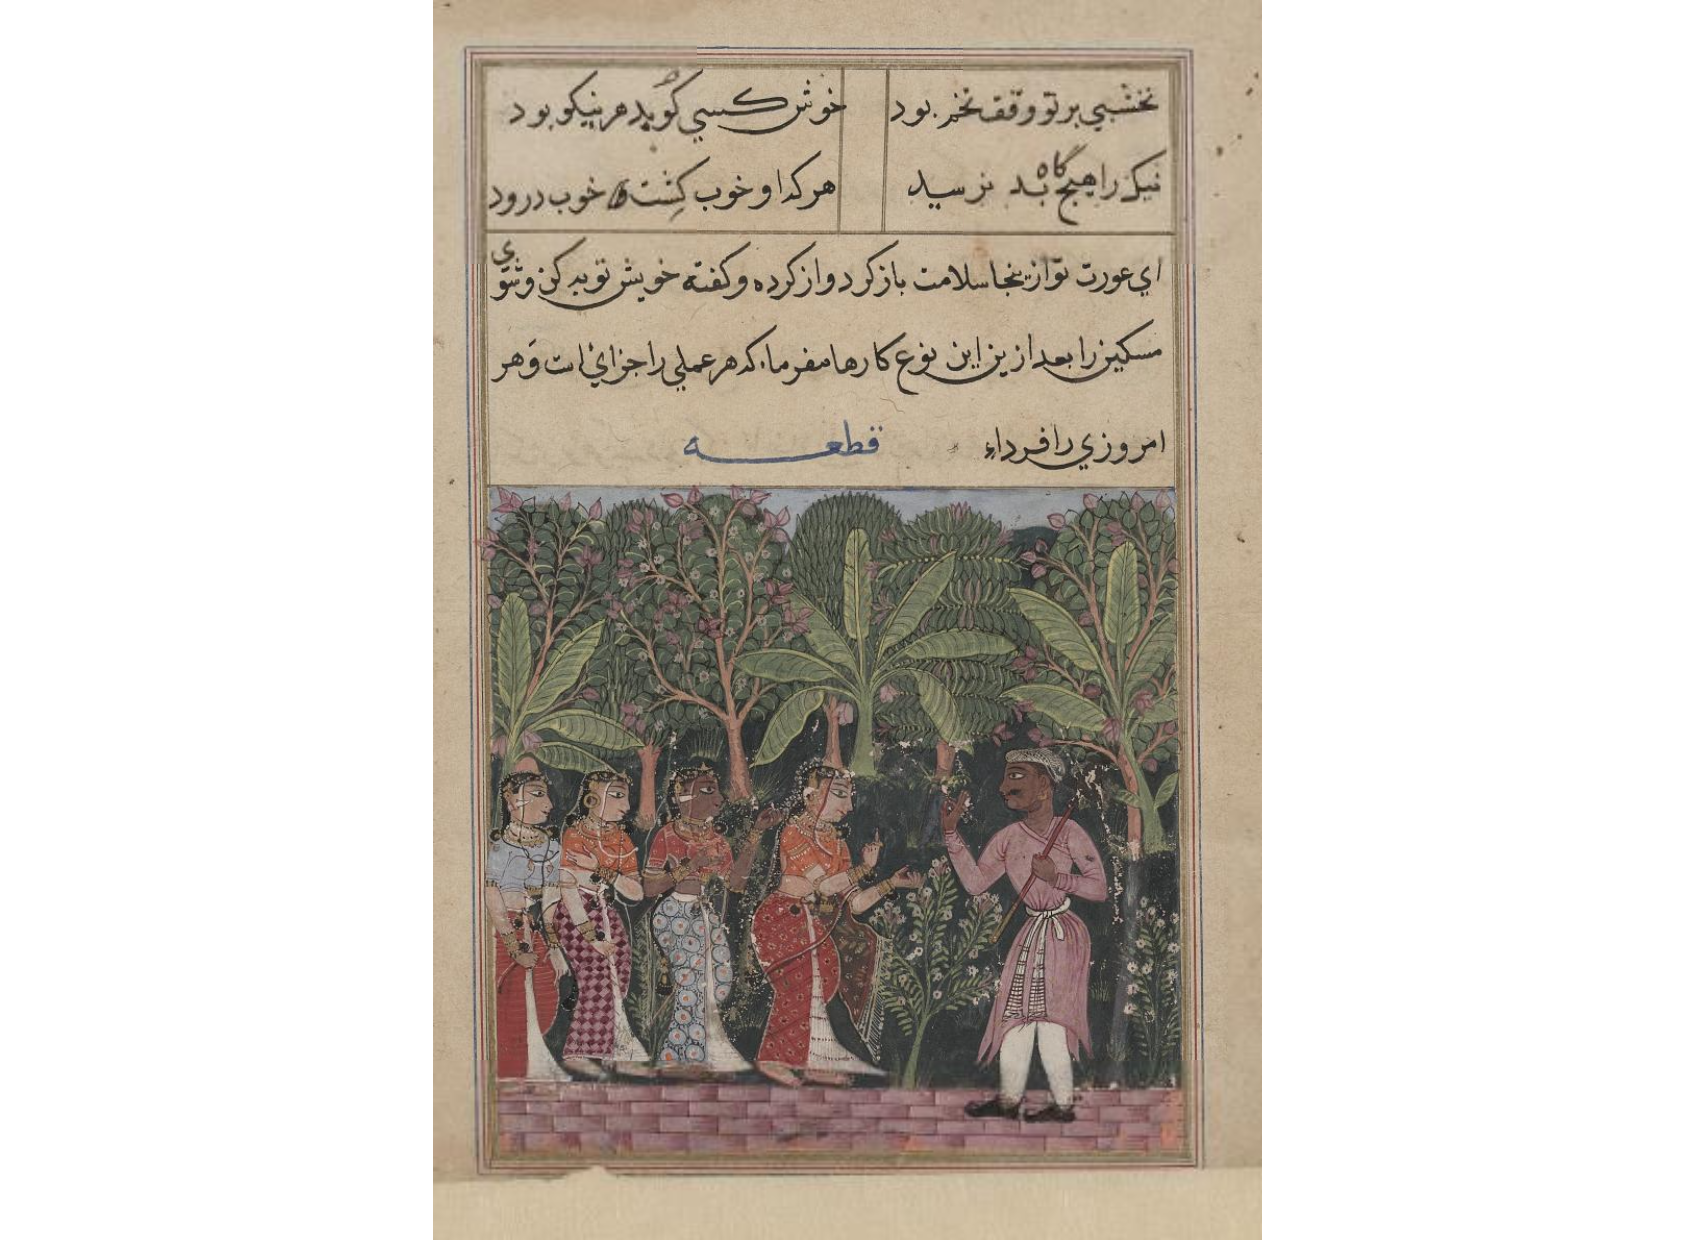 نخشبي بر تو وقف تخم بود
خوش كسي كويد هر نيكو بود
نيك را هيچ گاه بد نرسيد
هر كدا و خوب كِشت خوب درود
اي عورت تو ازينجا سلامت باز كرد و از كرده و كفته خويش توبه كن و شوي
مسكين را بعد ازين اين نوع كارها مفرماء كه هر عملي را جزاي است و هر
امروزي را فرداء
قطعه